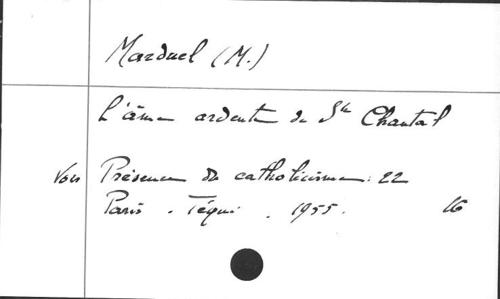 Marduel (M.)
L'âme ardente de Ste Chantal
Voir Présence du catholicisme: 22
Paris. Téqui. 1955. 16